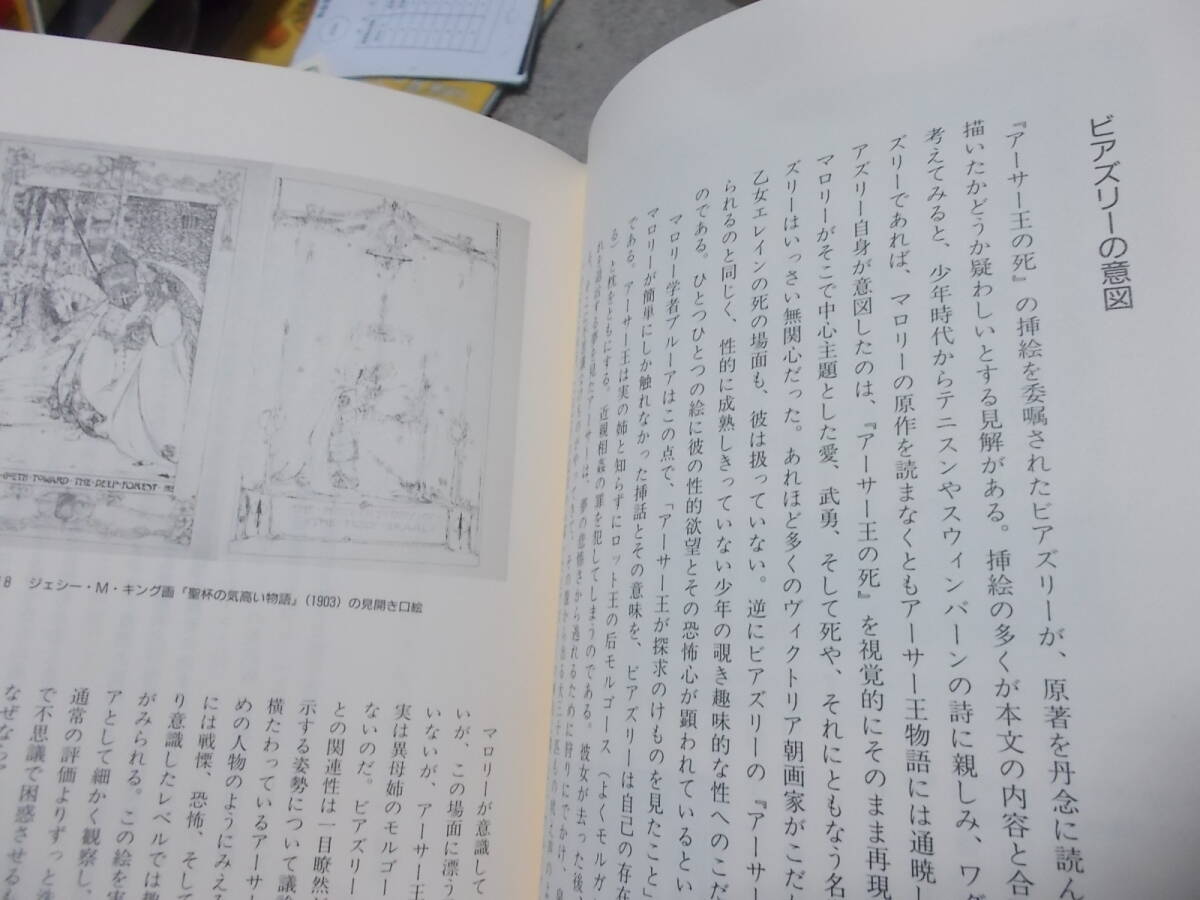 ビアズリーの意図
『アーサー王の死』の挿絵を委嘱されたビアズリーが、原著を丹念に読ん
描いたかどうか疑わしいとする見解がある。挿絵の多くが本文の内容と合
考えてみると、少年時代からテニスンやスウィンバーンの詩に親しみ、ワグ
ズリーであれば、マロリーの原作を読まなくともアーサー王物語には通暁し
アズリー自身が意図したのは、『アーサー王の死』を視覚的にそのまま再現
マロリーがそこで中心主題とした愛、武勇、そして死や、それにともなう名
ズリーはいっさい無関心だった。あれほど多くのヴィクトリア朝画家がこだ
乙女エレインの死の場面も、彼は扱っていない。逆にビアズリーの『アーサ
られるのと同じく、性的に成熟しきっていない少年の覗き趣味的な性へのこだ
のである。ひとつひとつの絵に彼の性的欲望とその恐怖心が顕われているとい
マロリー学者ブルーアはこの点で、「アーサー王が探求のけものを見たこと」
マロリーが簡単にしか触れなかった挿話とその意味を、ビアズリーは自己の存在
である。アーサー王は実の姉と知らずにロット王の后モルゴース（よくモルガ
る）と枕をともにする。近親相姦の罪を犯してしまうのである。彼女が去った後、
夢を見たアーサーは、夢の恐怖さから逃れるために狩りにでかけ、
OETH TOWARD THE DEEP FOREST
18 ジェシー・M・キング画『聖杯の気高い物語』（1903）の見開き口絵
マロリーが意識して
いが、この場面に漂う
いないが、アーサー王
実は異母姉のモルゴー
ないのだ。ビアズリー
との関連性は一目瞭然
示する姿勢について議
横たわっているアーサ
めの人物のようにみえ
には戦慄、恐怖、そし
り意識したレベルでは
がみられる。この絵を実
アとして細かく観察し、
通常の評価よりずっと
で不思議で困惑させる
なぜなら